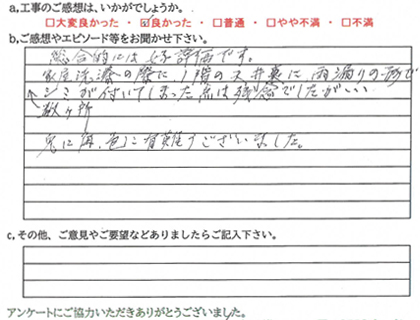 a.工事のご感想は、いかがでしょうか。
□大変良かった・☑良かった・□普通・□やや不満・□不満
b.ご感想やエピソード等をお聞かせ下さい。
総合的には好評価です。
家屋洗滌の際に、1階の天井裏に雨漏りの形で
シミが付いてしまった点は残念でしたが…
数ヶ所
兎に角、色々有難うございました。
c.その他、ご意見やご要望などありましたらご記入下さい。
アンケートにご協力いただきありがとうございました。